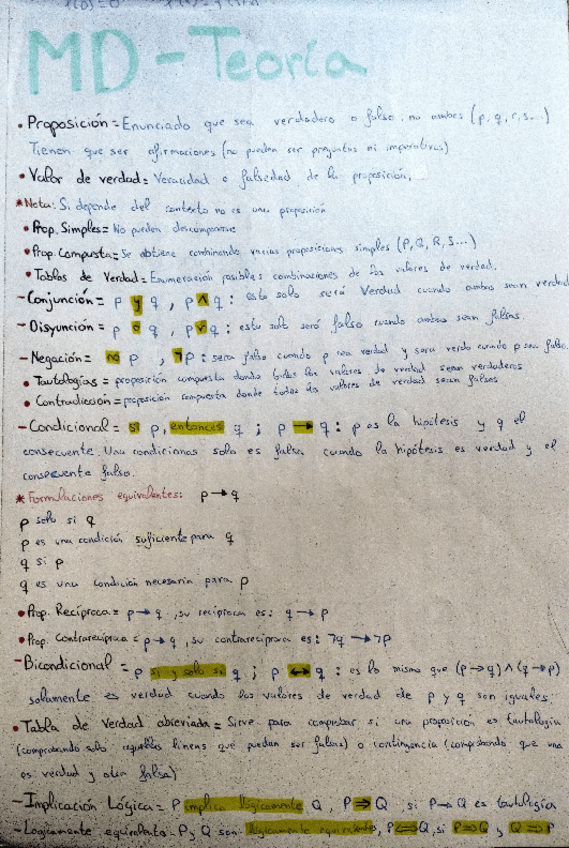 MD - Teoría
• Proposición = Enunciado que sea verdadero o falso, no ambos (p, q, r, s...)
Tienen que ser afirmaciones (no pueden ser preguntas ni imperativas)
• Valor de verdad = Veracidad o falsedad de la proposición.
* Nota: Si depende del contexto no es una proposición
• Prop. Simples = No pueden descomponerse
• Prop. Compuesta = Se obtiene combinando varias proposiciones simples (P, Q, R, S...)
• Tablas de Verdad = Enumeración posibles combinaciones de los valores de verdad.
- Conjunción = p y q , p ∧ q : esta solo será Verdad cuando ambas sean verdad
- Disyunción = p o q , p ∨ q : esta solo será falso cuando ambas sean falsas.
- Negación = no p , ¬p : sera falso cuando p sea verdad y sera verda cuando p sea falso.
• Tautologías = proposición compuesta donde todos los valores de verdad sean verdaderos
• Contradicción = proposición compuesta donde todos los valores de verdad sean falsos
- Condicional = si p, entonces q ; p → q : p es la hipótesis y q el
consecuente. Una condicional solo es falsa cuando la hipótesis es verdad y el
consecuente falso.
* Formulaciones equivalentes: p → q
p solo si q
p es una condición suficiente para q
q si p
q es una condición necesaria para p
• Prop. Recíproca = p → q , su recíproca es: q → p
• Prop. Contrarecíproca = p → q , su contrarecíproca es: ¬q → ¬p
- Bicondicional = p si y solo si q ; p ↔ q : es lo mismo que (p → q) ∧ (q → p)
solamente es verdad cuando los valores de verdad de p y q son iguales.
• Tabla de Verdad abreviada = Sirve para comprobar si una proposición es tautología
(comprobando solo aquellas líneas que puedan ser falsas) o contingencia (comprobando que una
es verdad y otra falsa)
- Implicación Lógica = P implica lógicamente Q , P ⇒ Q , si P → Q es tautología
- Logicamente equivalente - P y Q son lógicamente equivalentes, P ⇔ Q, si P ⇒ Q y Q ⇒ P